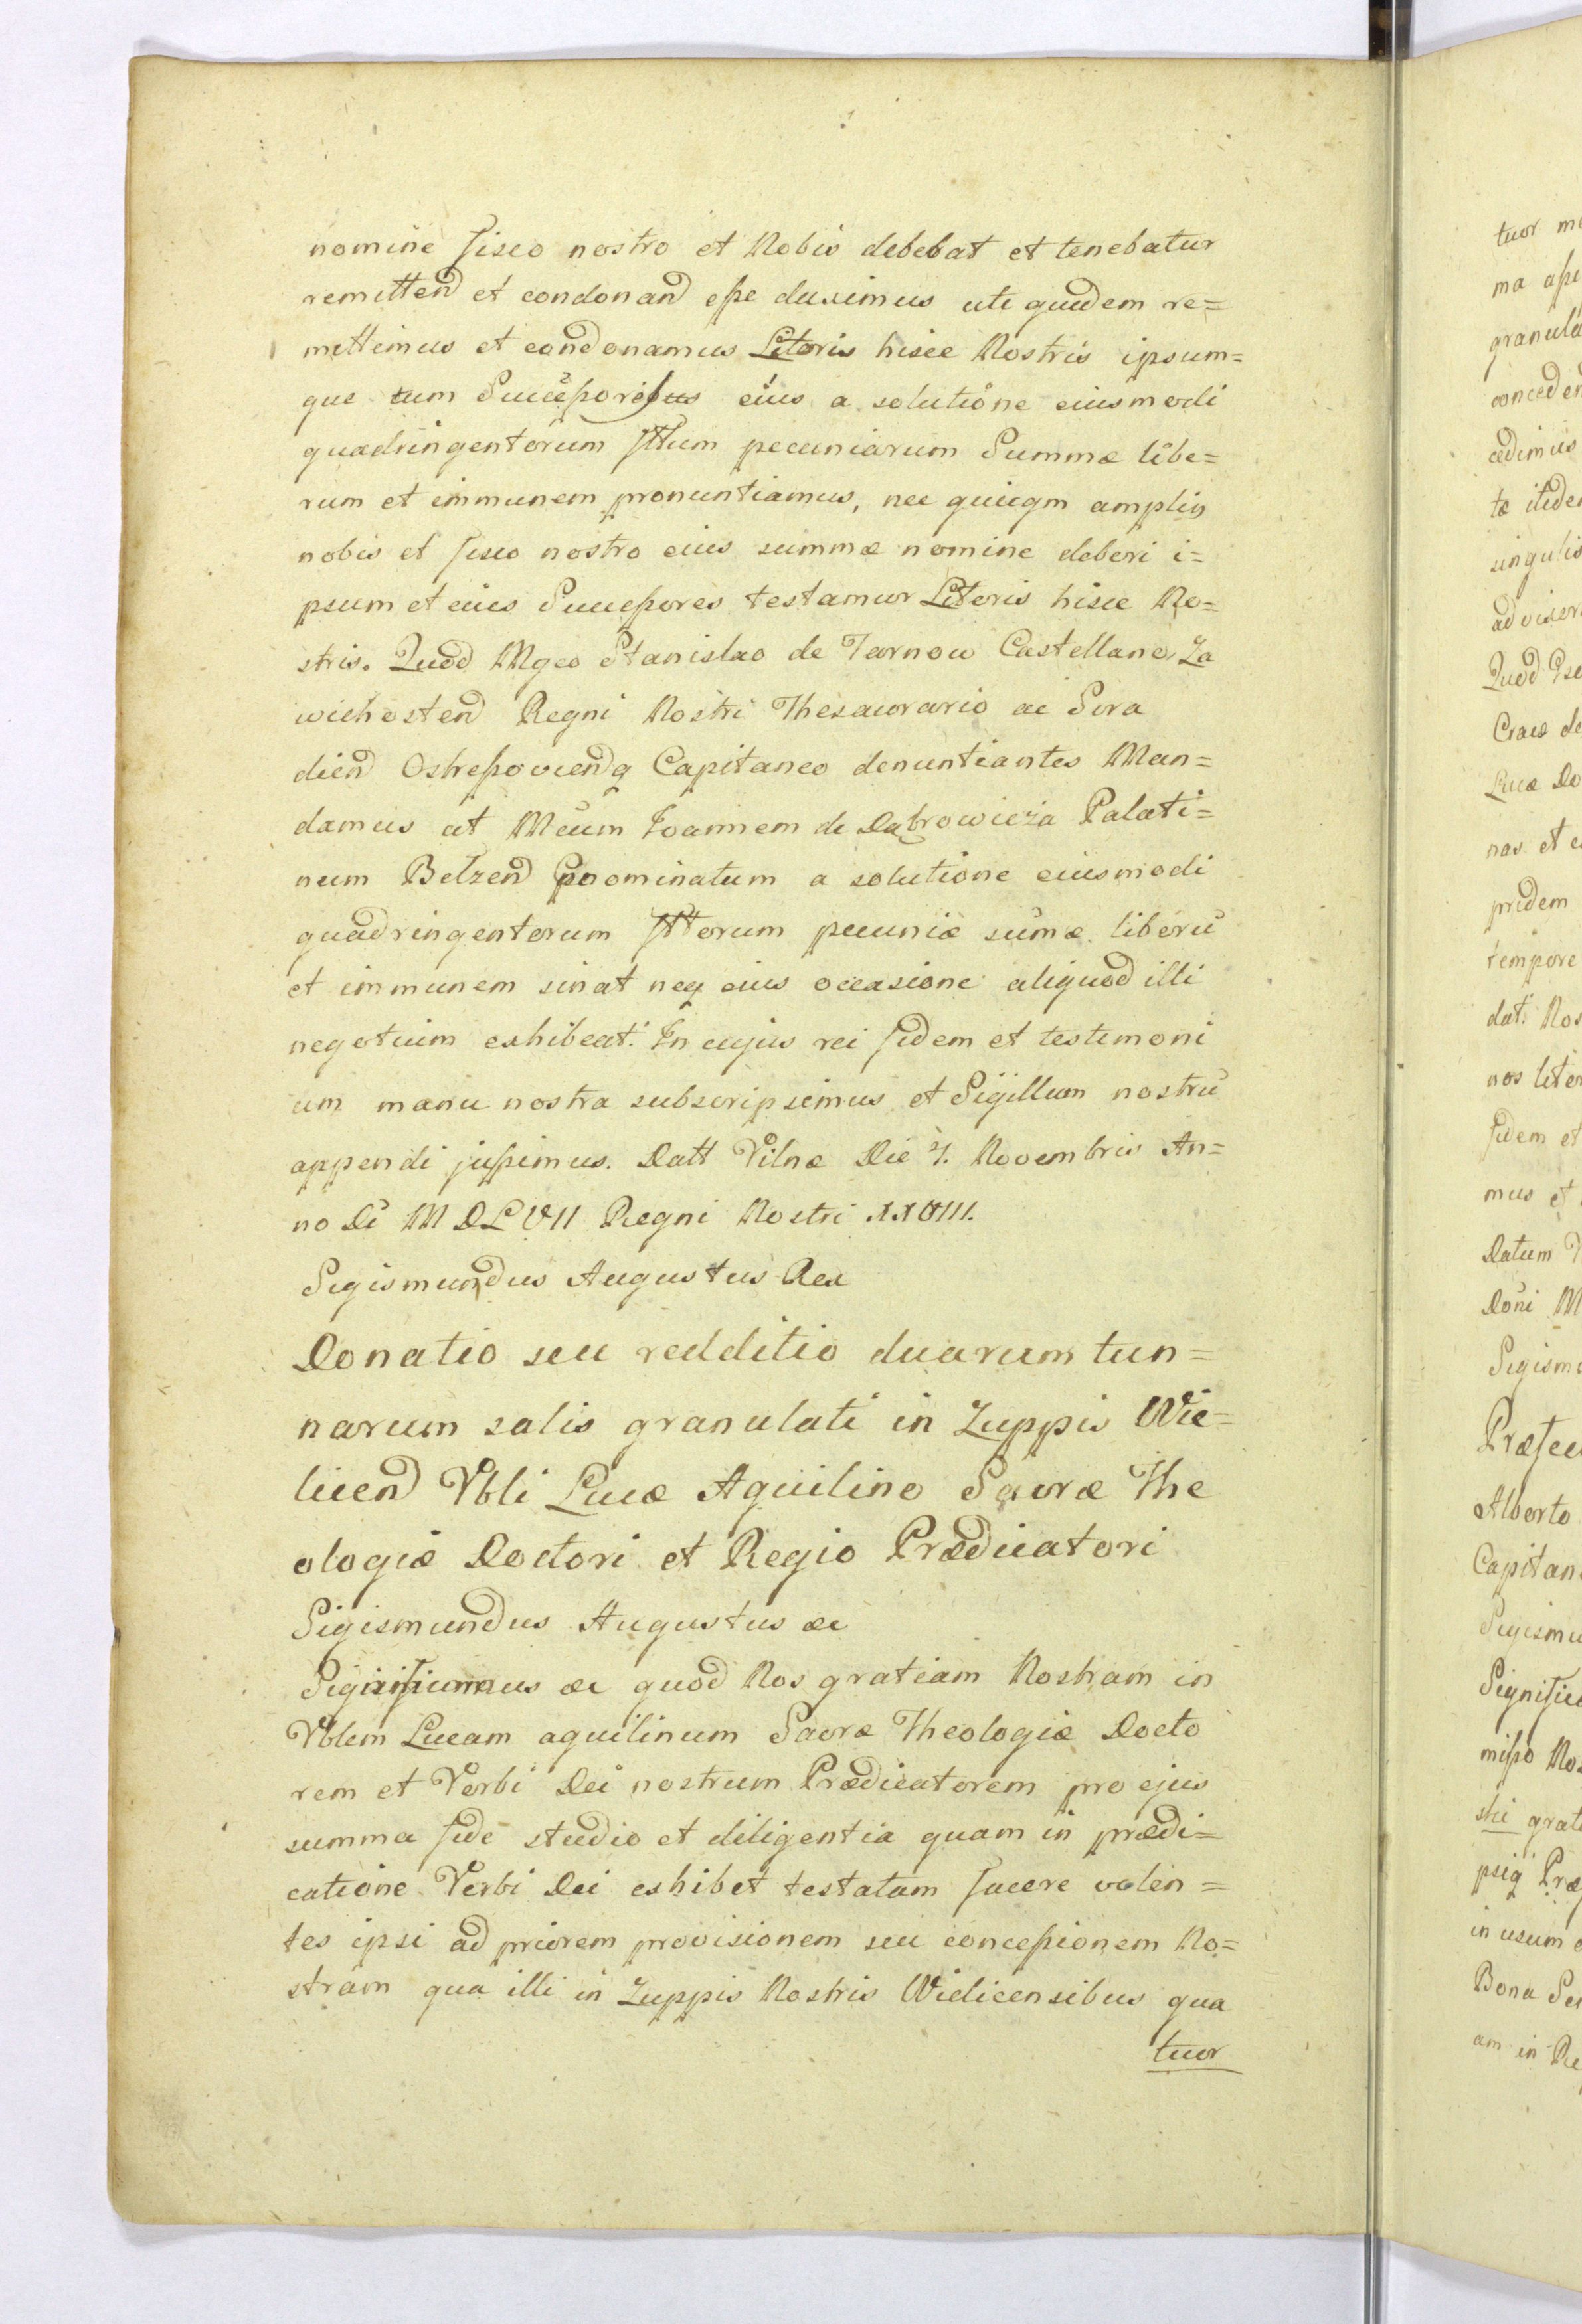 nomine fisco nostro et Nobis debebat et tenebatur
remittend et condonand esse duximus uti quidem re=
mittimus et condonamus Literis hisce Nostris ipsum=
que cum Successoribus eius a solutione eiusmodi
quadringentorum flllum pecuniarum Summæ libe=
rum et immunem pronuntiamus, nec quicqm amplius
nobis et fisco nostro eius summæ nomine deberi i=
psum et eius Successores testamur Literis hisce No=
stris. Quod Mgco Stanislao de Tarnow Castellano Za
wichosten Regni Nostri Thesaurario ac Sira
dien Ostressoviensq Capitaneo denuntiantes Man=
damus ut Mcum Joannem de Dąbrowicza Palati=
num Belzen Pnominatum a solutione eiusmodi
quadringentorum fllorum pecuniæ sumæ liberũ
et immunem sinat neq eius occasione aliquod illi
negotium exhibeat. In cujus rei fidem et testimoni
um manu nostra subscripsimus et Sigillum nostrũ
appendi jussimus. Datt Vilnæ Die 7. Novembris An=
no Di M D L VII Regni Nostri XXVIII.
Sigismundus Augustus Rex
Donatio seu redditio duarum tun=
narum salis granulati in Zuppis Wie=
licen Vbli Lucæ Aquilino Sacræ The
ologiæ Doctori et Regio Prædicatori
Sigismundus Augustus &c
Significamus &c quod Nos gratiam Nostram in
Vblem Lucam aquilinum Sacræ Theologiæ Docto
rem et Verbi Dei nostrum Prædicatorem pro ejus
summa fide studio et diligentia quam in prædi=
catione Verbi Dei exhibet testatam facere volen=
tes ipsi ad priorem provisionem seu concessionem No=
stram qua illi in Zuppis Nostris Wielicensibus qua
tuor
tuor
granula
conceden
cedimus
singulis
Quod
Crac de
Lucæ Do
nas et
pridem
tempore
dat. Nos
nos liter
fidem et
mus et
Datum
Dõni M
Sigism
Præfec
Alberto
Capitan
Sigismu
Significa
misso Nos
stri grati
in usum
Bona
am in Re